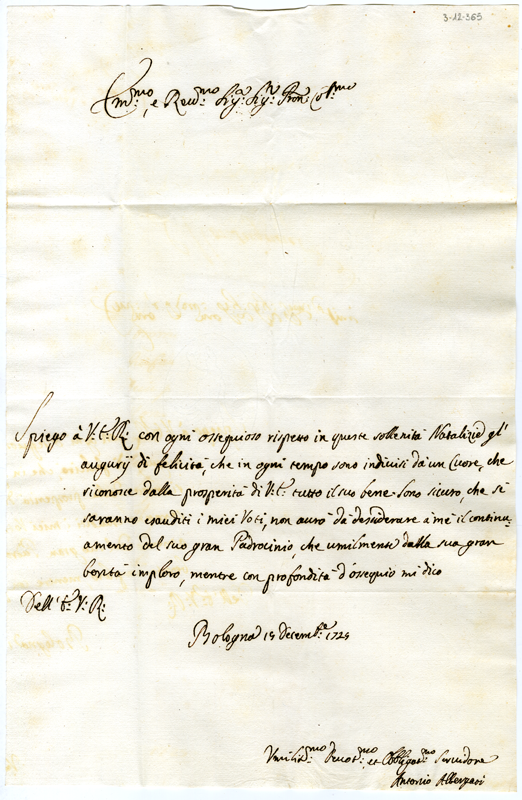 3-12-365
Em.mo, e Rev.mo Sig.r Sig.r Pron Col.mo
Spiego à V: E: R: con ogni ossequioso rispetto in queste sollenità Natalizie gl'
augurij di felicità, che in ogni tempo sono indiuisi da un Cuore, che
riconosce dalla prosperità di V: E: tutto il suo bene. Sono sicuro, che se
saranno esauditi i miei Voti, non aurò dà desiderare à mè il continu-
amento del suo gran Padrocinio, che umilmente dalla sua gran
bontà imploro, mentre con profondità d'ossequio mi dico
Dell' E: V: R:
Bologna decemb.e
Umiliss.mo Deuot.mo et Obbligat.mo Seruidore
Antonio